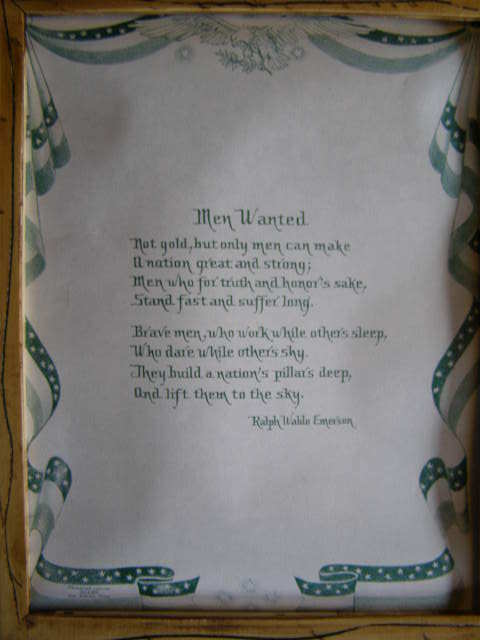 Men Wanted
Not gold, but only men can make
A nation great and strong;
Men who for truth and honor's sake,
Stand fast and suffer long.
Brave men, who work while others sleep,
Who dare while others shy.
They build a nation's pillars deep,
And lift them to the sky.
Ralph Waldo Emerson